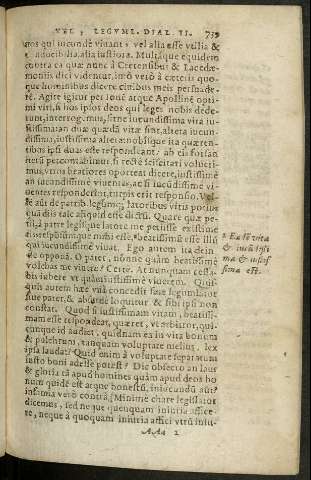 VEL, LEGVML. DIAL. II. 739
nos qui iucundè viuant: vel alia esse vtilia &
conducibilia, alia iustiora. Multáque equidem
contra ea quæ nunc à Cretensibus & Lacedæ-
moniis dici videntur, imò verò à cæteris quo-
que hominibus dicere ciuibus meis persuade-
rē. Agite igitur per Iouē atque Apollinē opti-
mi viri, si nos ipsos deos qui leges nobis dede-
runt, interrogemus, sitne iucundissima vita iu-
stissima: an duæ quædā vitæ sint, altera iucun-
dissima, iustissima altera: nobísque ita quæren-
tibus ipsi duas esse respondeant. ab eis forsan
iterū percontabimur, si rectè sciscitari volueri-
mus, vtros beatiores oporteat dicere, iustissimè
an iucundissimè viuentes. ac si iucūdissimè vi-
uentes responderint, turpis erit responsio. Vel-
lē aūt de patrib. legumq; latoribus virīs potius
quā diis tale aliquid esse dictū. Quare quæ pe-
tii, à patre legisque latore me petiisse existime-
tis: respōsumque mihi esse, beatissimū esse illū
qui iucundissimè viuat. Ego autem ita dein-
de opponā. O pater, nonne quàm beatissimè
volebas me viuere? Certè. At nunquam cessa-
bis iubere vt quàm iustissimè viuerem. Quis-
quis autem hæc vnà concedit siue legumlator
siue pater, & absurdè loquitur & sibi ipsi non
constat. Quòd si iustissimam vitam, beatissi-
mam esse respondeat, quæret, vt arbitror, qui-
cunque id audiet, quidnam ea in vita bonum
& pulchrum, tanquam voluptate melius, lex
ipsa laudat? Quid enim à voluptate separatum
iusto boni adesse potest? Dic obsecro an laus
& gloria tā apud homines quàm apud deos bo-
num quidē est atque honestū, iniucundū aūt?
infamia verò contrà? Minimè chare legislator
dicemus, sed neque quenquam iniuria affice-
re, neque à quoquam iniuria affici vtrū iniu-
A A a 2
Eadē vita
& iucūdissi
ma & iustis
sima est.